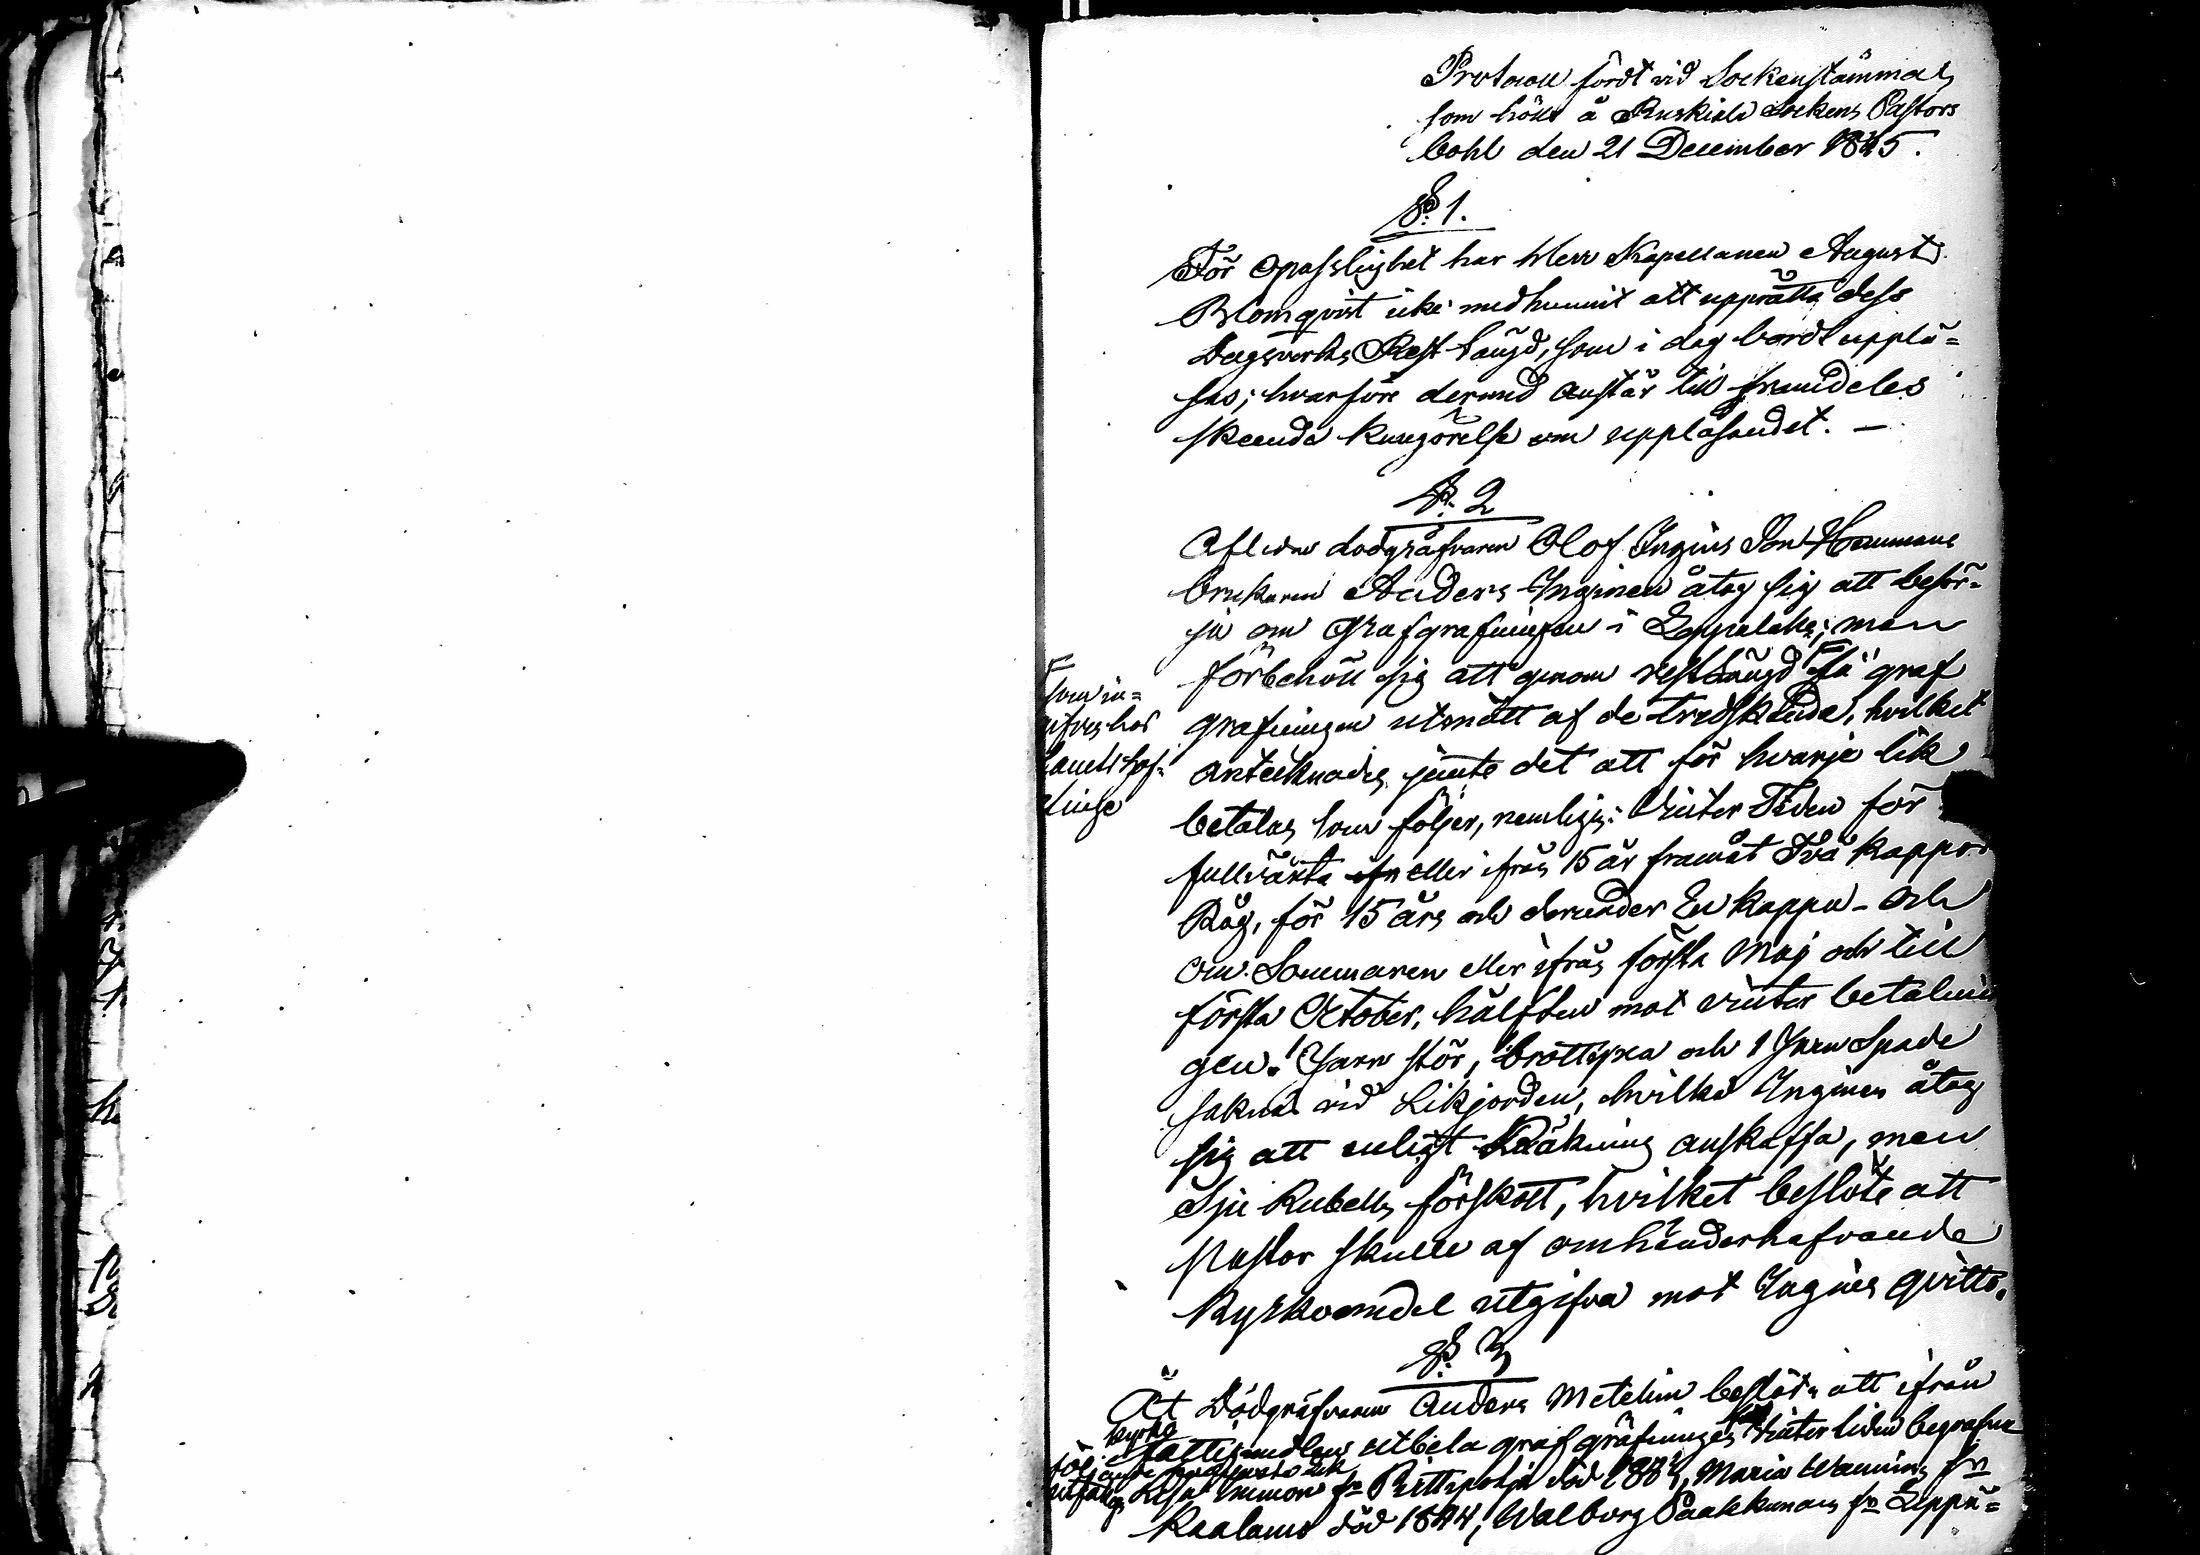 Protocoll fördt vid Sockenstämma
som hölls å Ruskiala Sockens Pastors
bohl den 21 December 1845.
§. 1.
För opasslighet har Herr Kapellanen August
Blomqvist icke medhunnit att upprätta dess
Dagsverks Rest längd, som i dag bordt upplä=
sas; hvarföre dermed anstår till framdeles
skeende kungörelse om uppläsandet. —
§. 2
Aflidne dödgräfvaren Olof Ingins Son Hemmans
brukaren Anders Inginen åtog sig att besör=
ja om Grafgrafningen i; men
förbehöll sig att genom restlängd F få graf
grafningen utmätt af de tredskande, hvilket
antecknades jemte det att för hvarje lik
betalas som följer, nemligen: Vinter Tiden för
fullväxta eller ifrån 15 år framåt Två kappor
Råg, för 15 års och derunder En kappa - och
om Sommaren eller ifrån första Maj och till
första October, hälften mot vinter betalnin
gen. 1 Jern stör, 1 brottyxa och 1 Jern Spade
saknas vid Likjorden, hvilka Inginen åtog
sig att enligt Räkning anskaffa, men
Sju Rubels förskott, hvilket beslöts att
Pastor skulle af omhänderhafvande
Kyrkomedel utgifva mot Ingins qvitto.
F
som in=
gifves hos
Landshöf=
dinge
§. 3
Åt Dödgräfvaren Anders Metelin beslöts att ifrån
kyrko
medlen utbetala graf gräfningen Vintertiden begrafne
följande
Lisa Immon fn död, Maria fn
Kaalamo död 1844, Walborg Paakkunain fn Leppä=